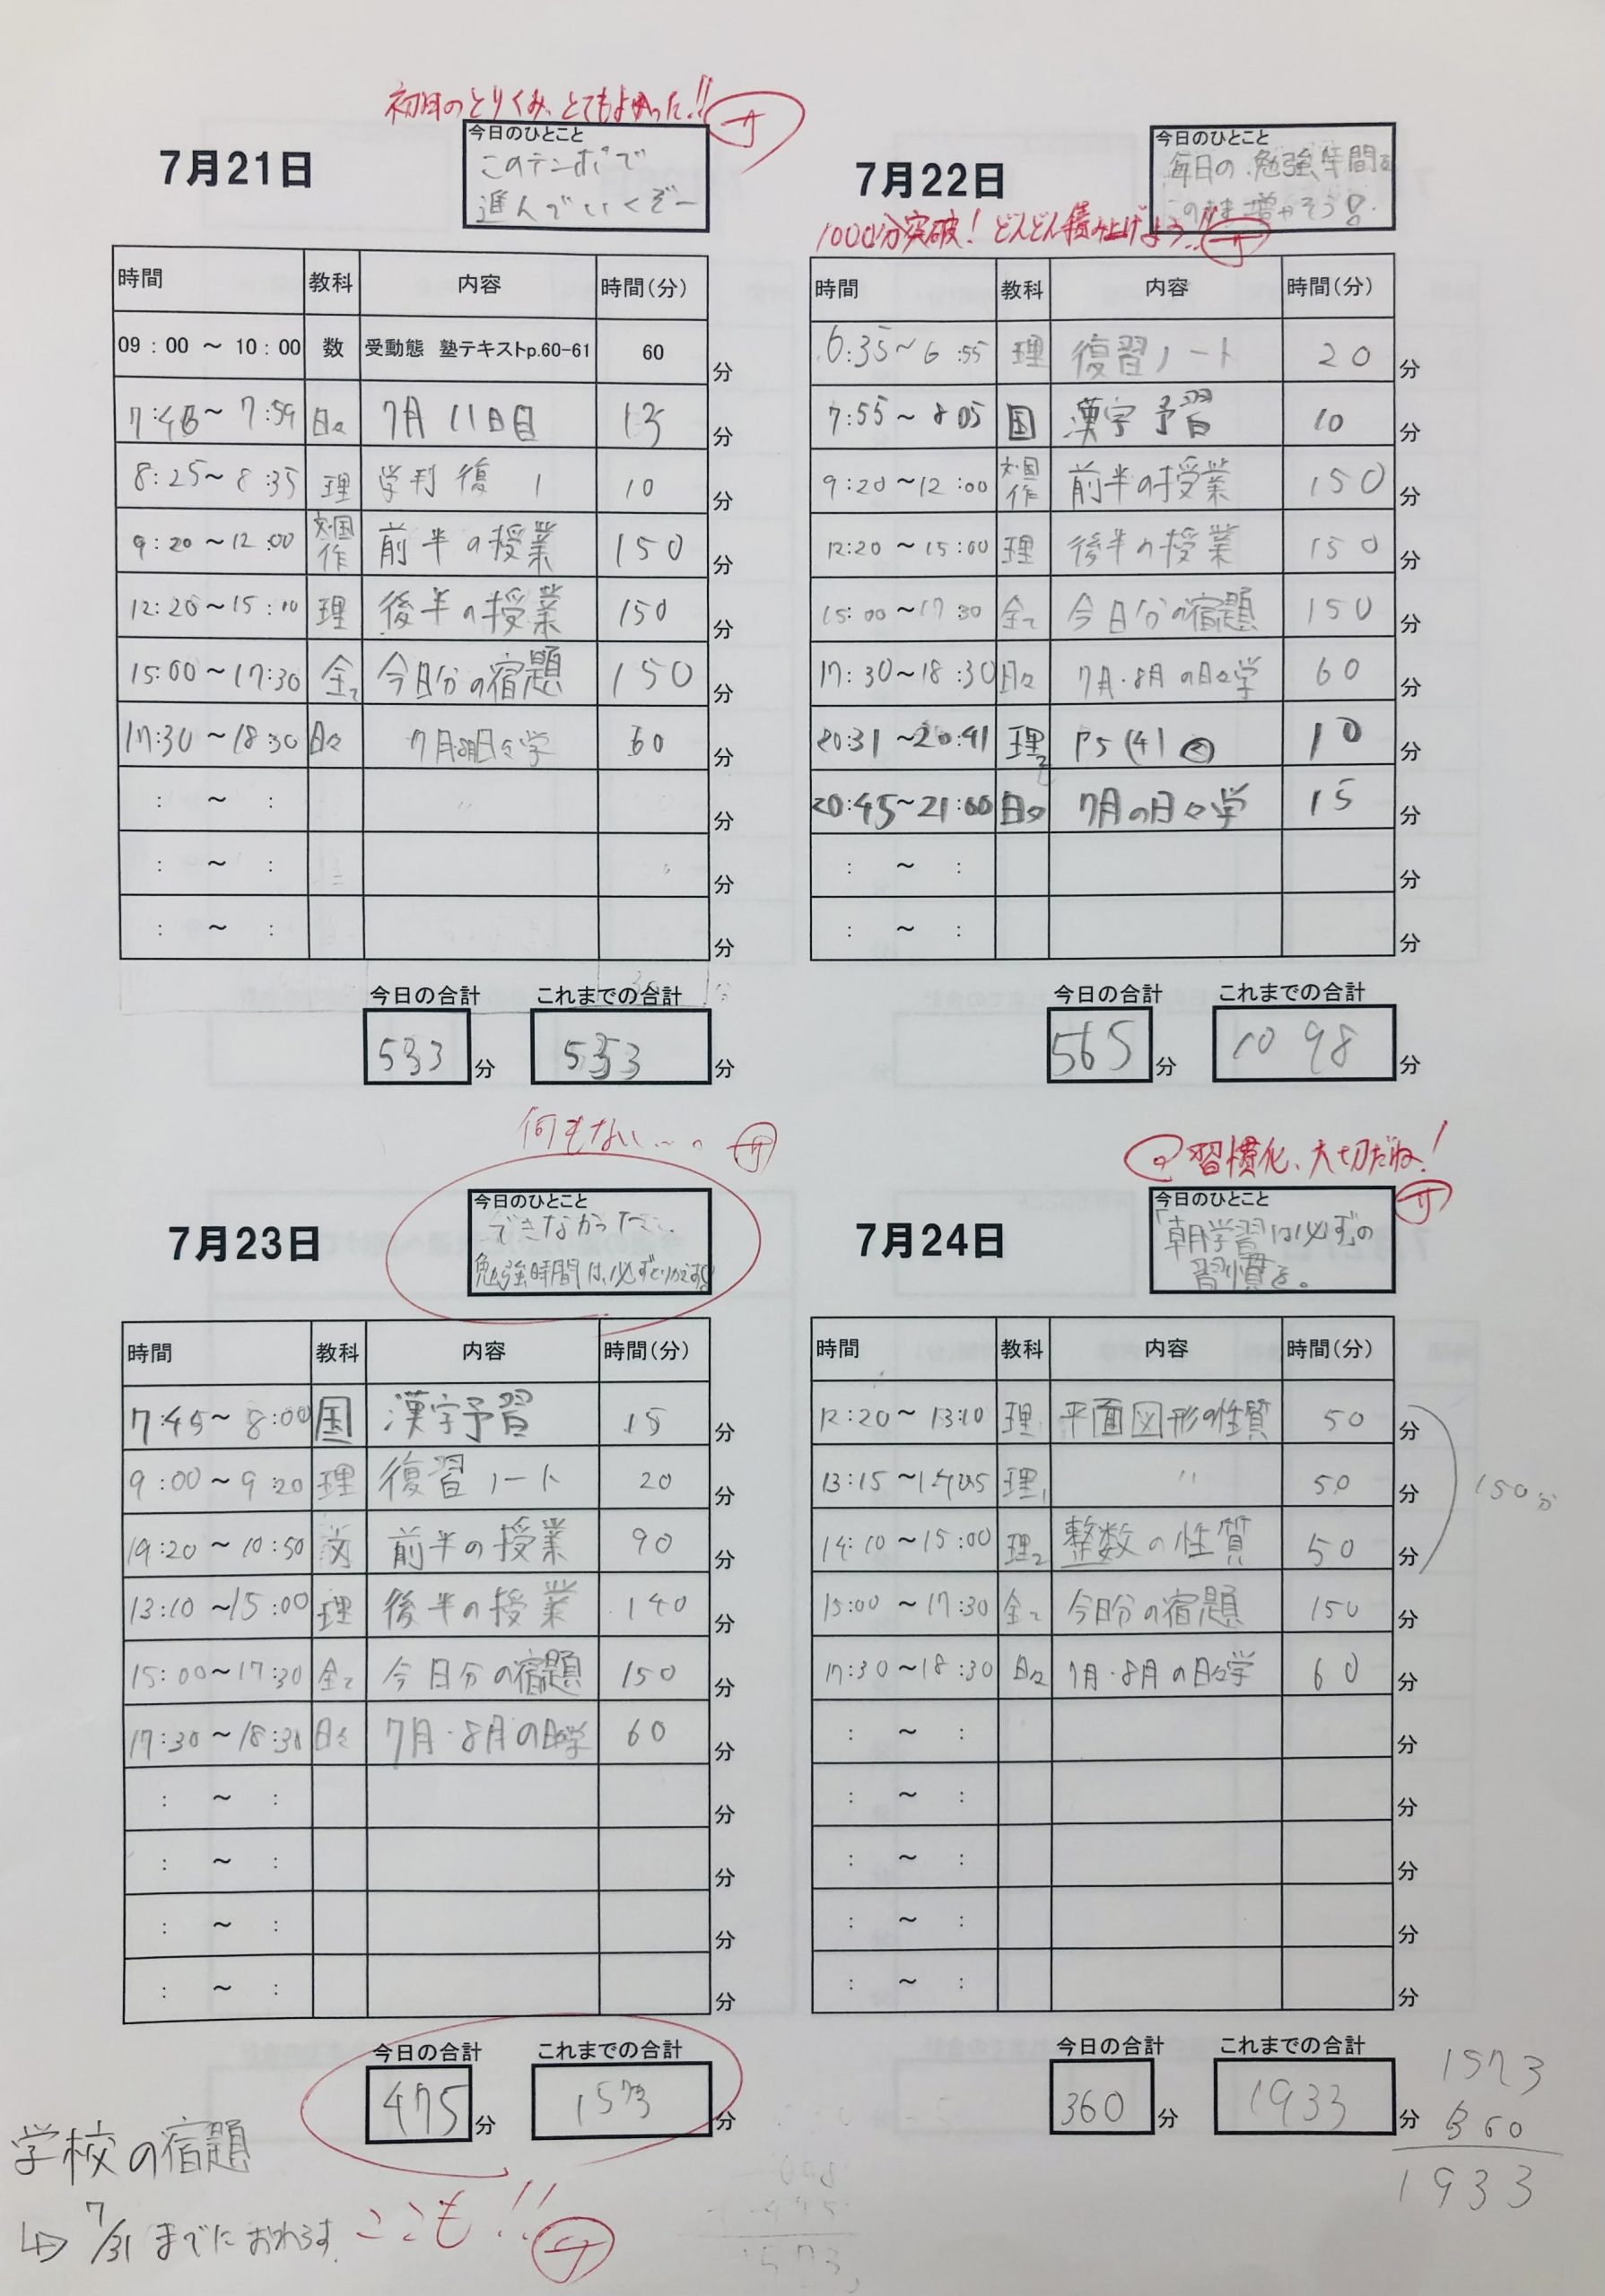 初日のとりくみ、とてもよかった!!
サ
7月21日
今日のひとこと
このテンポで
進んでいくぞー
時間 教科 内容 時間(分)
09:00 ~ 10:00 数 受動態 塾テキストp.60-61 60 分
7:46~7:59 日々 7月11日目 13 分
8:25~8:35 理 学判 復 1 10 分
9:20~12:00 文・国作 前半の授業 150 分
12:20~15:10 理 後半の授業 150 分
15:00~17:30 全て 今日分の宿題 150 分
17:30~18:30 日々 7月・8月日々学 60 分
: ~ : 分
: ~ : 分
: ~ : 分
今日の合計 これまでの合計
533 分 533 分
7月22日
今日のひとこと
毎日の勉強時間を
このまま増やそう!
1000分突破!どんどん積み上げよう!!
サ
時間 教科 内容 時間(分)
6:35~6:55 理 復習ノート 20 分
7:55~8:05 国 漢字予習 10 分
9:20~12:00 文・国作 前半の授業 150 分
12:20~15:00 理 後半の授業 150 分
15:00~17:30 全て 今日分の宿題 150 分
17:30~18:30 日々 7月・8月の日々学 60 分
20:31~20:41 理2 P5(4)② 10 分
20:45~21:00 日々 7月の日々学 15 分
: ~ : 分
: ~ : 分
今日の合計 これまでの合計
565 分 1098 分
何もない…。
サ
7月23日
今日のひとこと
できなかった…
勉強時間は、必ずとりかえす!
時間 教科 内容 時間(分)
7:45~8:00 国 漢字予習 15 分
9:00~9:20 理 復習ノート 20 分
19:20~10:50 文 前半の授業 90 分
13:10~15:00 理 後半の授業 140 分
15:00~17:30 全て 今日分の宿題 150 分
17:30~18:30 日々 7月・8月の日々学 60 分
: ~ : 分
: ~ : 分
: ~ : 分
: ~ : 分
今日の合計 これまでの合計
475 分 1573 分
習慣化、大切だね!
サ
7月24日
今日のひとこと
「朝学習は必ず」の
習慣を。
時間 教科 内容 時間(分)
12:20~13:10 理1 平面図形の性質 50 分
13:15~14:05 理1 〃 50 分
14:10~15:00 理2 整数の性質 50 分
150分
15:00~17:30 全て 今日分の宿題 150 分
17:30~18:30 日々 7月・8月の日々学 60 分
: ~ : 分
: ~ : 分
: ~ : 分
: ~ : 分
: ~ : 分
今日の合計 これまでの合計
360 分 1933 分
1573
360
1933
学校の宿題
↳ 7/31 までにおわらす。
ここも!!
サ